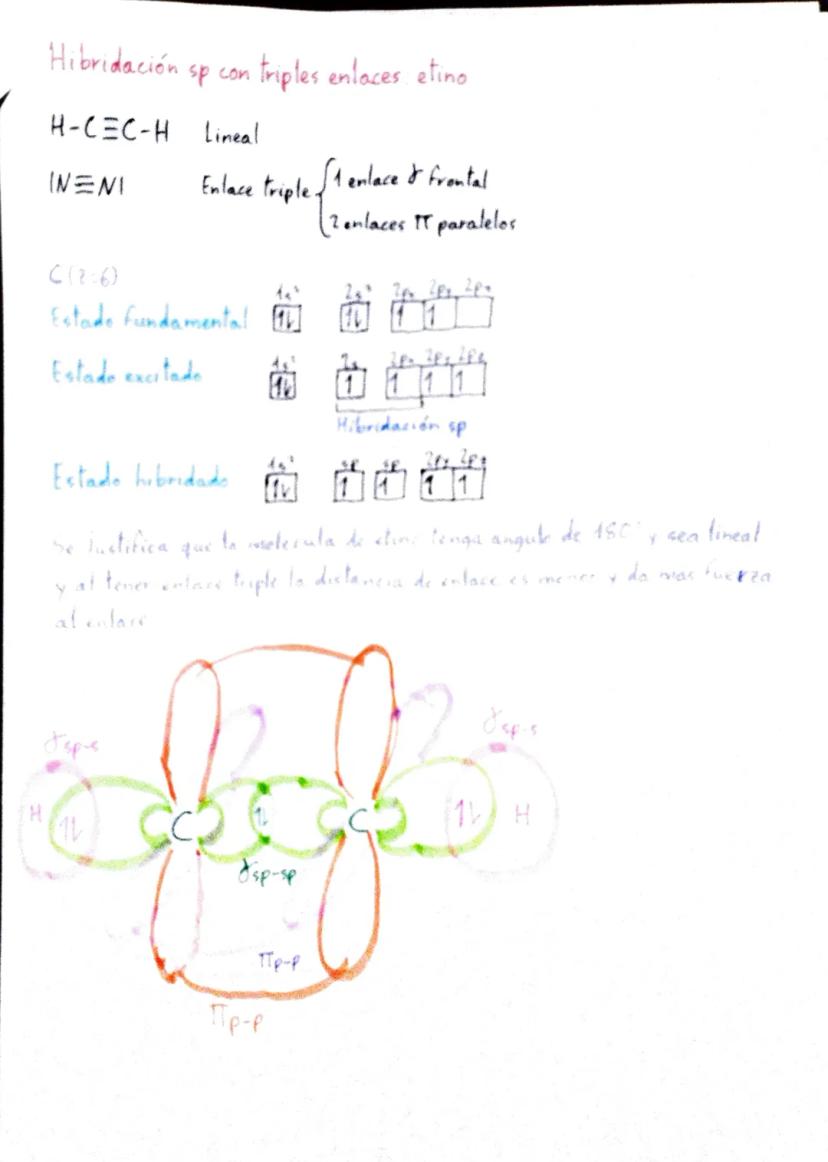 Hibridación sp con triples enlaces: etino
H-C≡C-H Lineal
|N≡N| Enlace triple 1 enlace γ frontal
2 enlaces π paralelos
C(Z:6)
1s² 2s² 2px 2py 2pz
Estado fundamental 1↓ 1↓ 1 1
1s² 2s 2px 2py 2pz
Estado excitado 1↓ 1 1 1 1
Hibridación sp
1s² sp sp 2py 2pz
Estado hibridado 1↓ 1 1 1 1
Se justifica que la molécula de etino tenga angulo de 180° y sea lineal
y al tener enlace triple la distancia de enlace es menor y da mas fuerza
al enlace
γsp-s γsp-s
H 1↓ C 1↓ C 1↓ H
γsp-sp
πp-p
πp-p